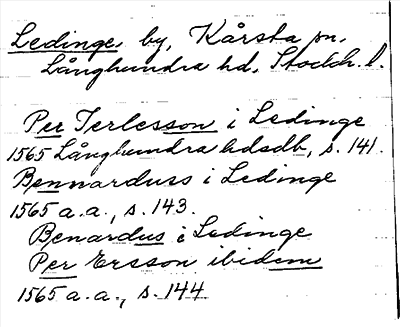 Ledinge, by, Kårsta sn,
Långhundra hd, Stockh. l.
Per Terlesson i Ledinge
1565 Långhundra hdsdb, s. 141.
Bennarduss i Ledinge
1565 a.a., s. 143.
Benardus i Ledinge
Per Ersson ibidem
1565 a.a., s. 144